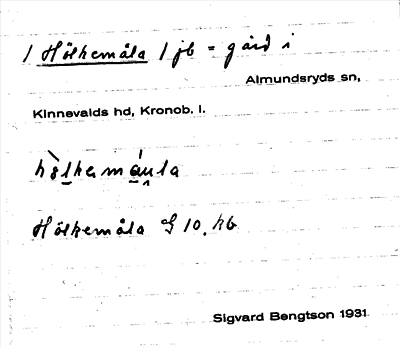 1 Hölkemåla 1 jb = gård i
Almundsryds sn,
Kinnevalds hd, Kronob. l.
Hölkemåla GS 10. kb
Sigvard Bengtson 1931